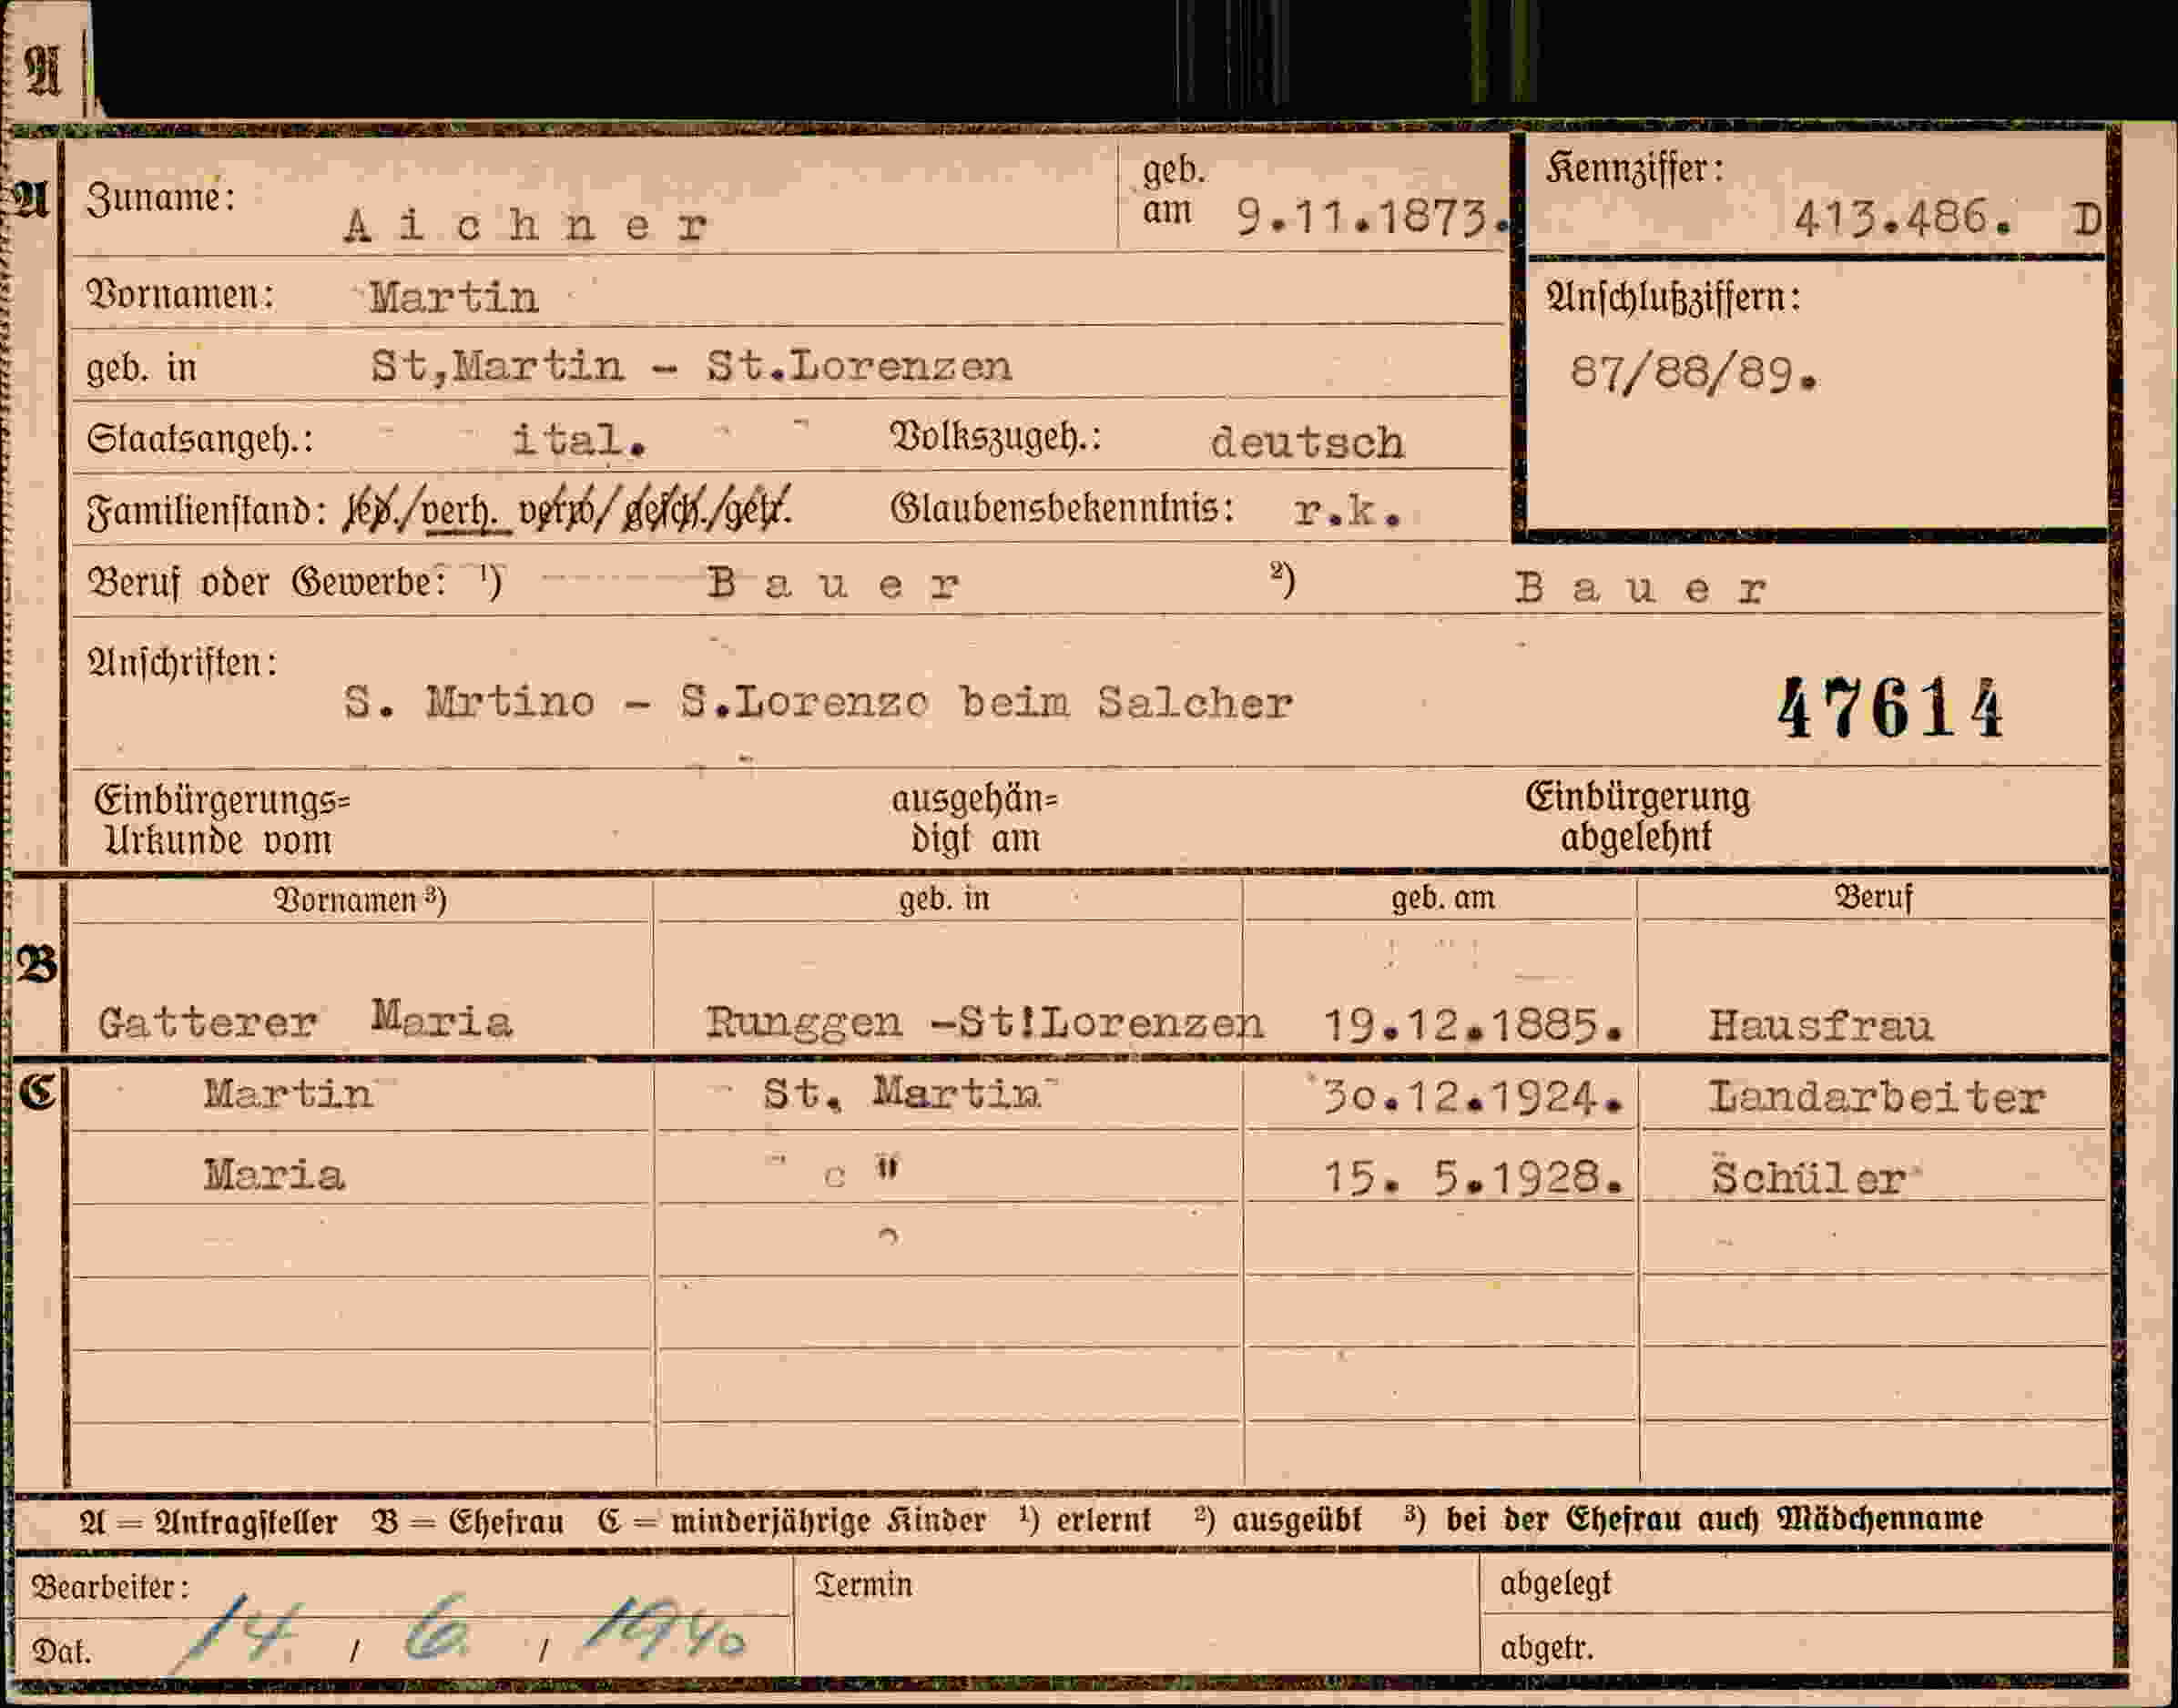 A
A
Zuname: Aichner geb. am 9.11.1873. Kennziffer: 413.486. D
Vornamen: Martin Anschlußziffern:
geb. in St,Martin - St.Lorenzen 87/88/89.
Staatsangeh.: ital. Volkszugeh.: deutsch
Familienstand: led./verh. verw/gesch./getr. Glaubensbekenntnis: r.k.
Beruf oder Gewerbe: ¹) Bauer ²) Bauer
Anschriften:
S. Mrtino - S.Lorenzo beim Salcher 47614
Einbürgerungs= ausgehän= Einbürgerung
Urkunde vom digt am abgelehnt
Vornamen ³) geb. in geb. am Beruf
B
Gatterer Maria Runggen -St!Lorenzen 19.12.1885. Hausfrau
C Martin St. Martin 30.12.1924. Landarbeiter
Maria " c " 15. 5.1928. Schüler
A = Antragsteller B = Ehefrau C = minderjährige Kinder ¹) erlernt ²) ausgeübt ³) bei der Ehefrau auch Mädchenname
Bearbeiter: Termin abgelegt
Dat. 14 / 6 / 1940 abgetr.